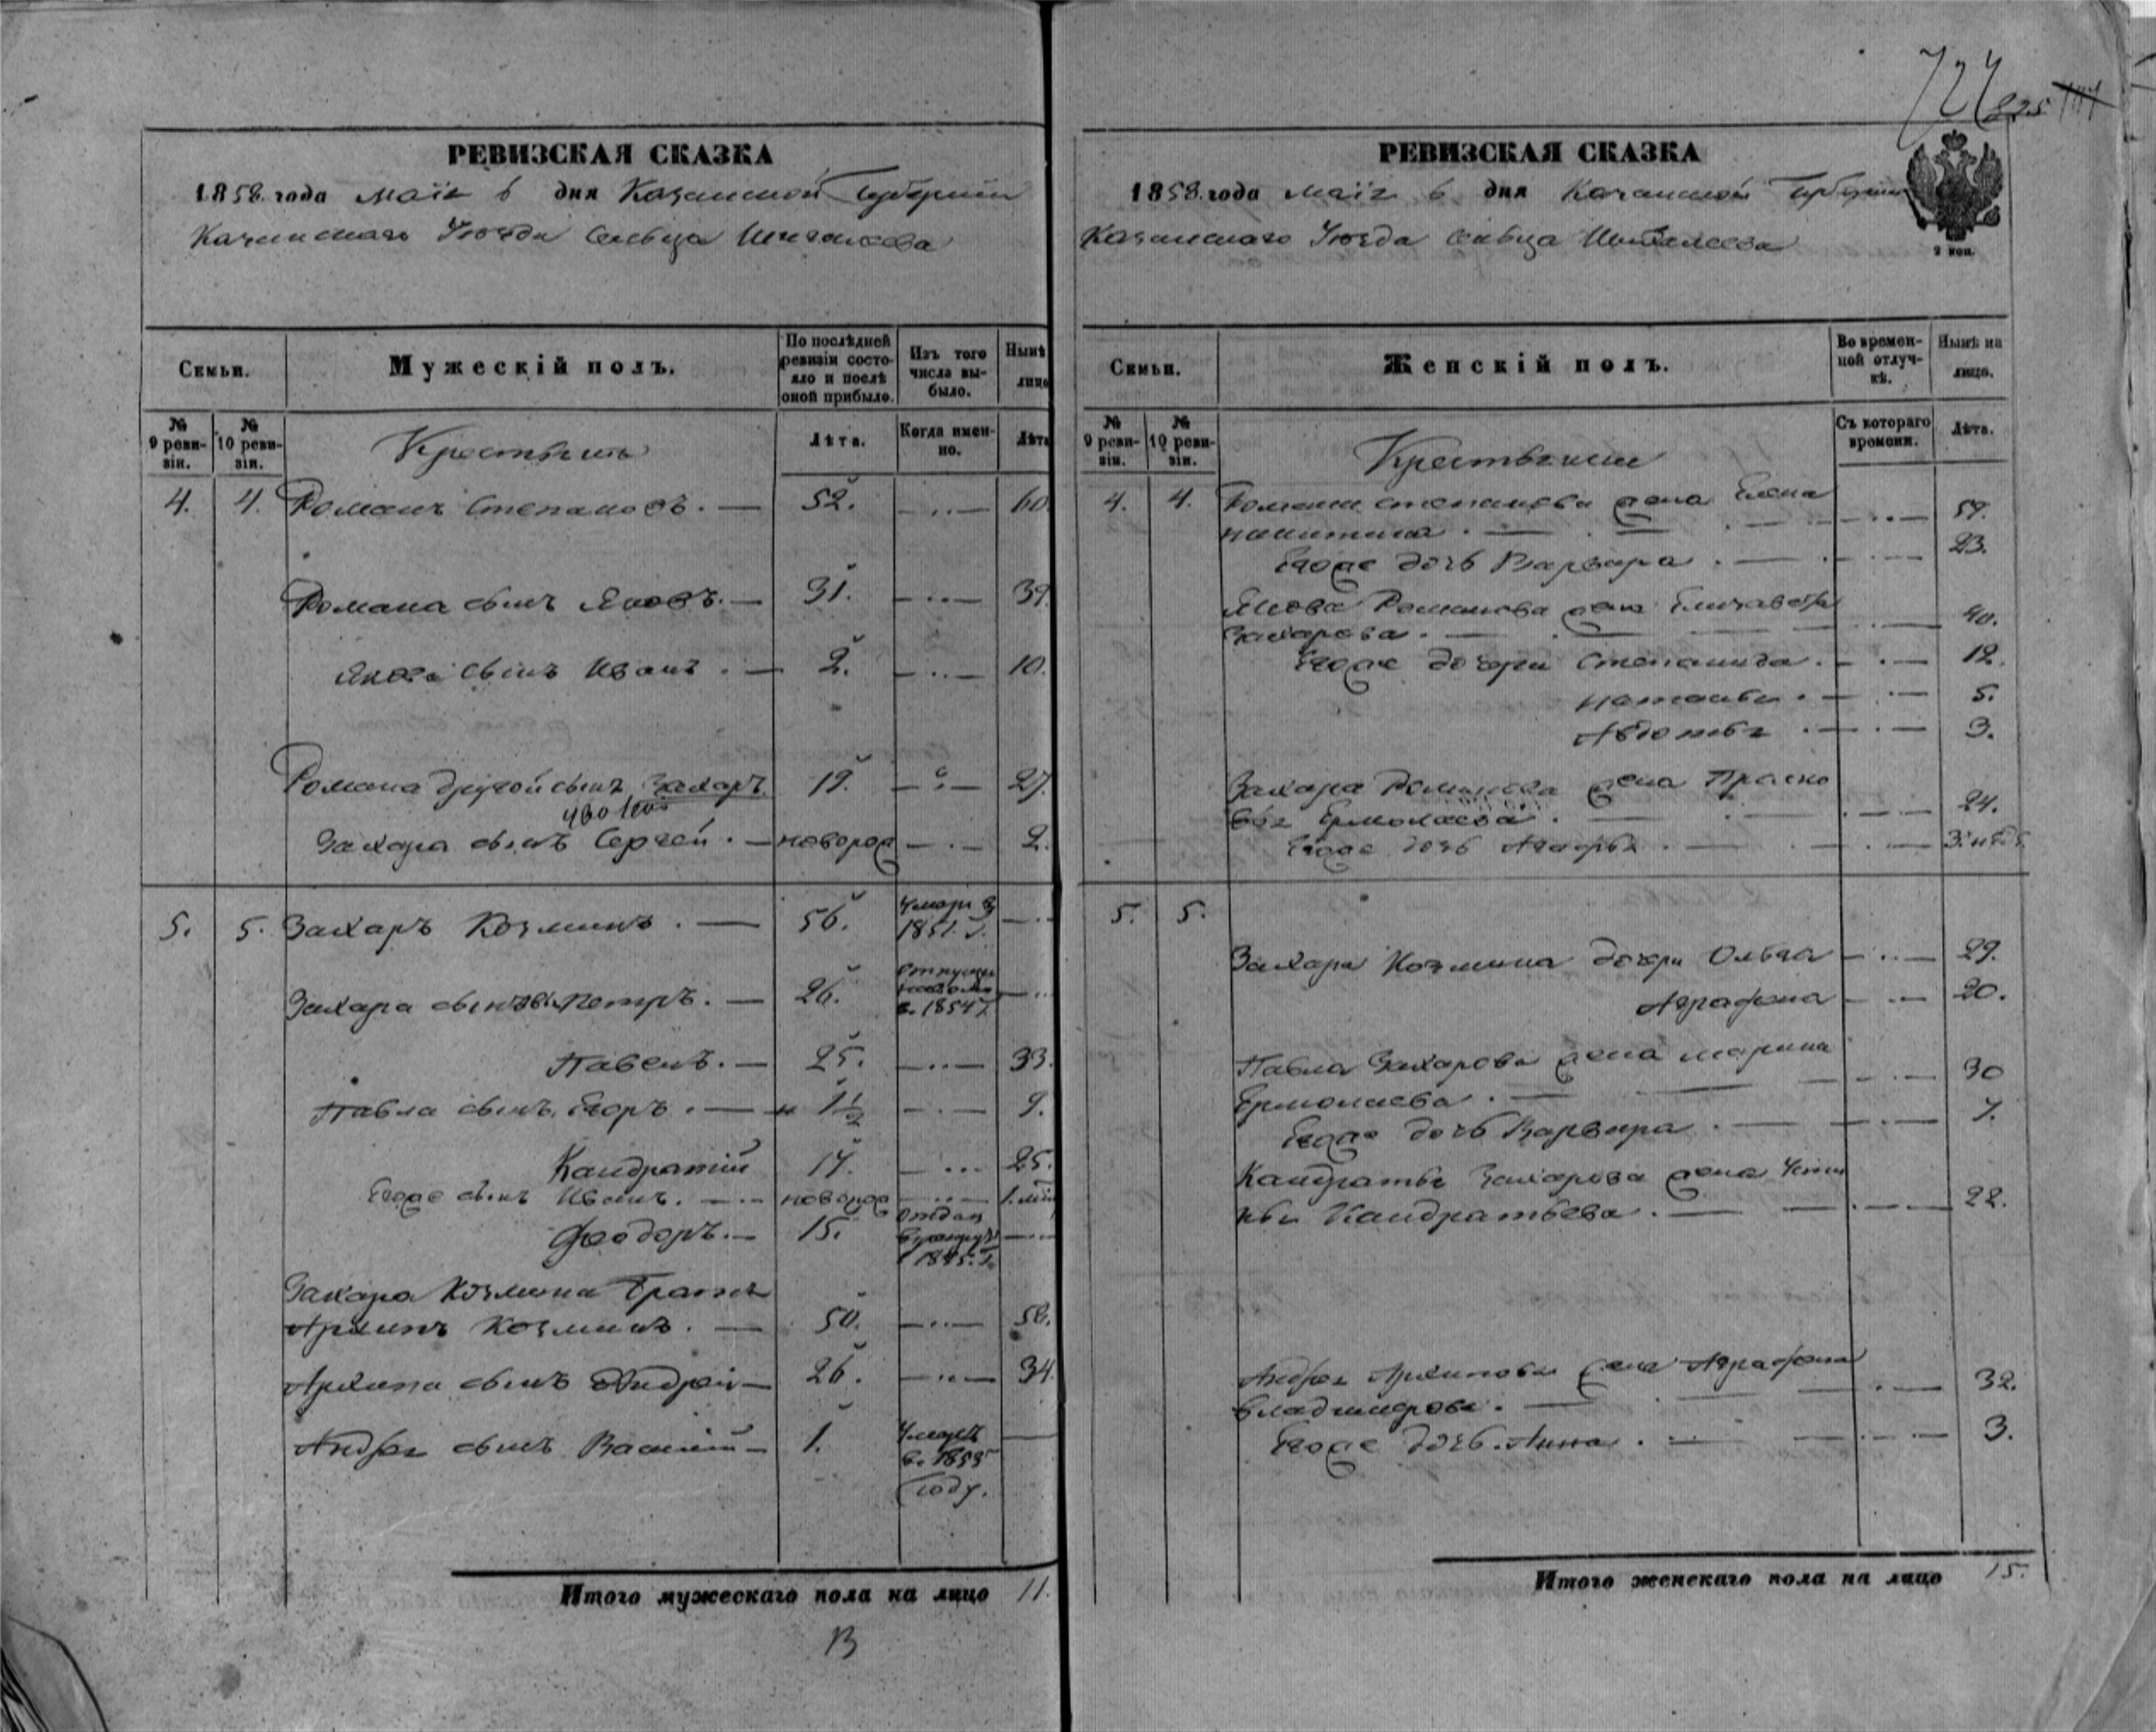 724
РЕВИЗСКАЯ СКАЗКА
1858 года маiя 6 дня Казанской Губернiи
Казанскаго Уѣзда сельца
Семьи.
Мужескiй полъ.
По послѣдней ревизiи состояло и послѣ оной прибыло.
Изъ того числа выбыло.
Нынѣ лицо
№ 9 ревизiи.
№ 10 ревизiи.
Крестьяне
Лѣта.
Когда именно.
Лѣта
4. 4. Романъ Степановъ. 52. 60.
Романа сынъ Яковъ. 31. 39.
Якова сынъ Иванъ. 2. 10.
Романа другой сынъ Захаръ 19. 27.
Захара сынъ Сергей. новорож 2.
5. 5. Захаръ Козминъ. 56. умеръ в 1851. г.
Захара сыновья Петръ. 26. в. 1854 г.
Павелъ. 25. 33.
Павла сынъ Егоръ. 1 1/2 9.
Кандратiй 17. 25.
Егоже сынъ Иванъ. новорож
Феодоръ. 15. отдан
Захара Козмина братъ
Архипъ Козминъ. 50. 58.
Архипа сынъ Андрей 26. 34.
Андрея сынъ Василiй 1. умеръ в. 1855 году.
Итого мужескаго пола на лицо 11.
РЕВИЗСКАЯ СКАЗКА
1858. года маiя 6 дня Казанской Губернiи
Казанскаго Уѣзда сельца
2 коп.
Семьи.
Женскiй полъ.
Во временной отлучкѣ.
Нынѣ на лицо.
№ 9 ревизiи.
№ 10 ревизiи.
Крестьянки
Съ котораго времени.
Лѣта.
4. 4. Романа Степанова жена Елена
Никитина. 59.
Егоже дочь Варвара. 23.
Якова Романова жена Елизавета
Захарова. 40.
Егоже дочери Степанида. 12.
Наталья. 5.
Авдотья 3.
Захара Романова жена Праско
вья Ермолаева. 24.
Егоже дочь Агафья.
5. 5.
Захара Козмина дочери Ольга 29.
Аграфена 20.
Павла Захарова жена Марина
Ермолаева. 30
Егоже дочь Варвара. 7.
Кандратья Захарова жена Усти
нья Кандратьева. 22.
Андрея Архипова жена Аграфена
Владимирова. 32.
Егоже дочь Анна. 3.
Итого женскаго пола на лицо 15.